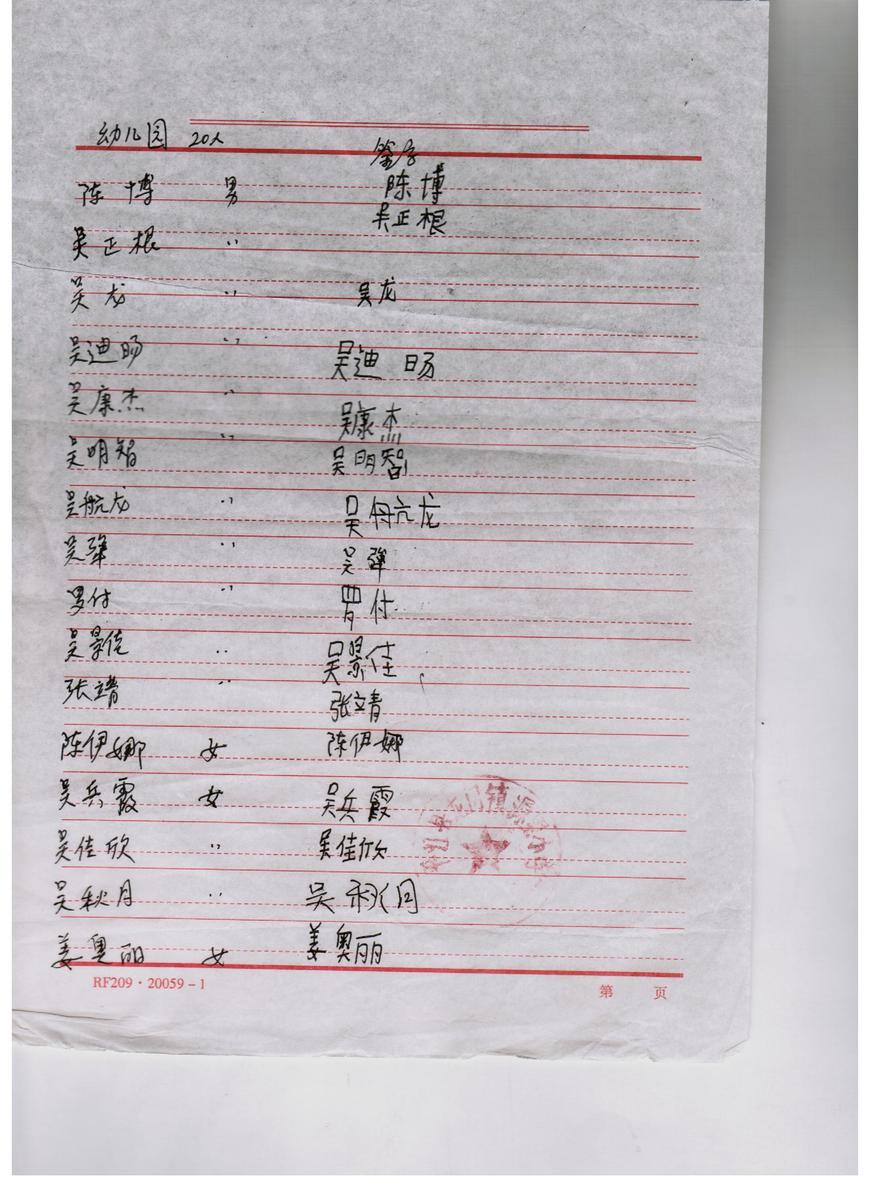 幼儿园 20人
签字
陈博 男 陈博
吴正根 〃 吴正根
吴龙 〃 吴龙
吴迪旸 〃 吴迪旸
吴康杰 〃 吴康杰
吴明智 〃 吴明智
吴航龙 〃 吴航龙
吴弹 〃 吴弹
罗付 〃 罗付
吴景佳 〃 吴景佳
张靖 〃 张靖
陈伊娜 女 陈伊娜
吴兵霞 女 吴兵霞
吴佳欣 〃 吴佳欣
吴秋月 〃 吴秋月
姜奥丽 女 姜奥丽
RF209·20059-1 第 页